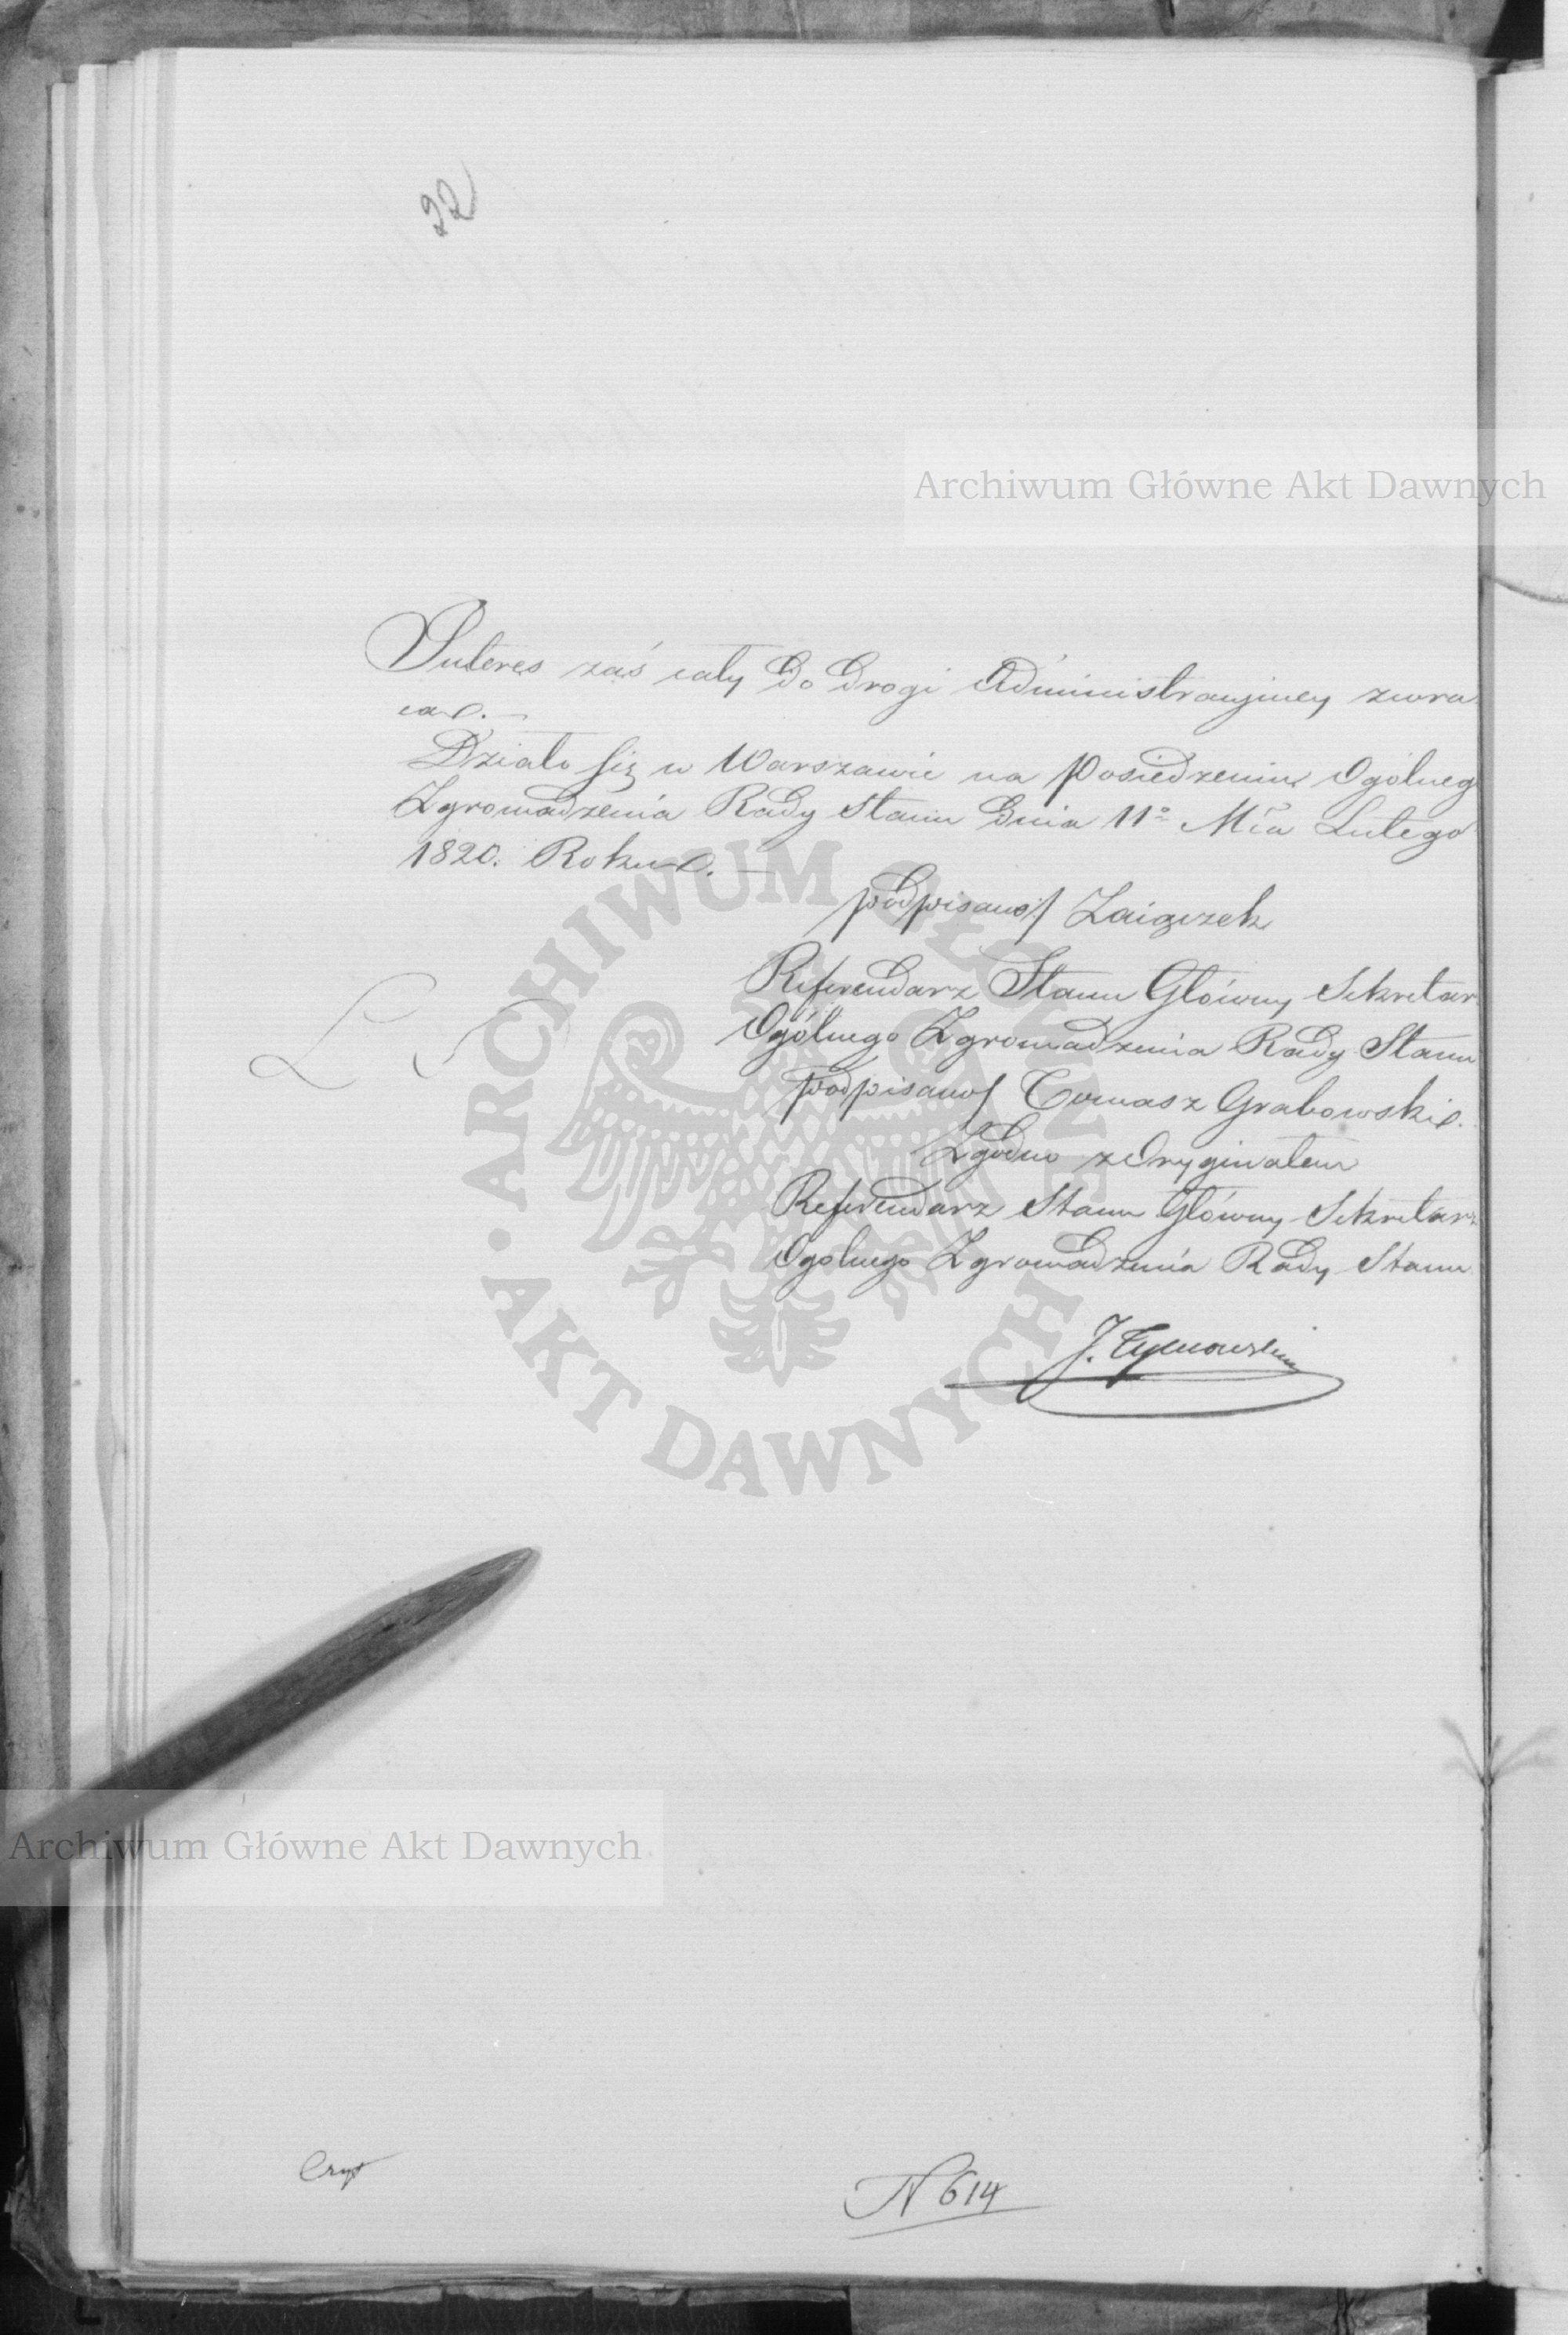 22
Archiwum Główne Akt Dawnych
Interes zaś cały do drogi Administracyjney zwra
ca.—
Działo się w Warszawie na Posiedzeniu Ogólneg
Zgromadzenia Rady Stanu dnia 11º Mca Lutego
1820. Roku.—
podpisano/ Zaiączek
Referendarz Stanu Główny Sekretar
Ogólnego Zgromadzenia Rady Stanu
L S
podpisano/ Tomasz Grabowski.
Zgodno z Oryginałem
Referendarz Stanu Główny Sekretarz
Ogolnego Zgromadzenia Rady Stanu
J. Tymowski
ARCHIWUM GŁÓWNE • AKT DAWNYCH
Archiwum Główne Akt Dawnych
N 614